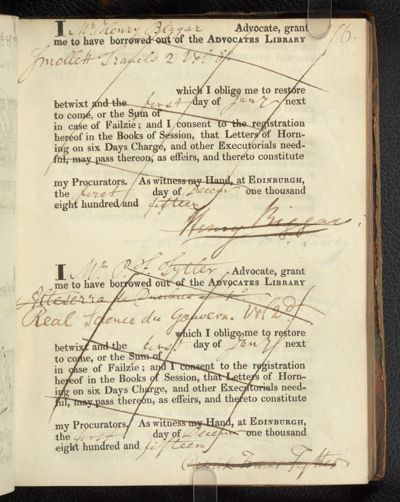 I Mr Henry Biggar Advocate, grant
me to have borrowed out of the ADVOCATES LIBRARY
Smollett Travels 2 Vol. 8º
which I oblige me to restore
betwixt and the first day of Jany next
to come, or the Sum of
in case of Failzie; and I consent to the registration
hereof in the Books of Session, that Letters of Horn-
ing on six Days Charge, and other Executorials need-
ful, may pass thereon, as effeirs, and thereto constitute
my Procurators. As witness my Hand, at EDINBURGH,
the first day of Decem one thousand
eight hundred and fifteen
Henry Biggar
I Mr P. F. Tytler Advocate, grant
me to have borrowed out of the ADVOCATES LIBRARY
4º
Real Science du Gouvern. Vol 2d
which I oblige me to restore
betwixt and the first day of Jany next
to come, or the Sum of
in case of Failzie; and I consent to the registration
hereof in the Books of Session, that Letters of Horn-
ing on six Days Charge, and other Executorials need-
ful, may pass thereon, as effeirs, and thereto constitute
my Procurators. As witness my Hand, at EDINBURGH,
the first day of Decem one thousand
eight hundred and fifteen
Fraser Tytler